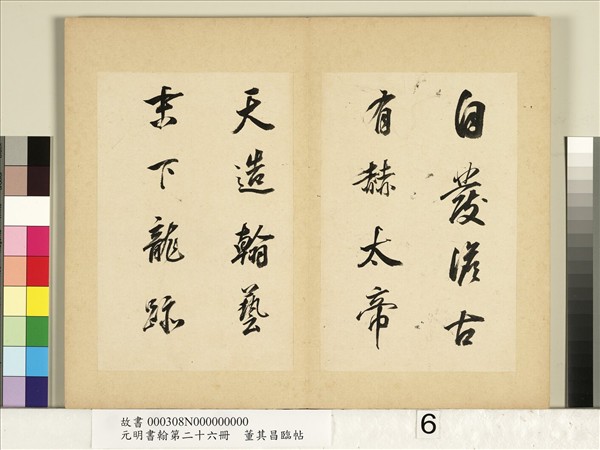 自發澹古
有赫太帝
天造翰藝
下龍跡
故書 000308N000000000
元明書翰第二十六冊 董其昌臨帖
6